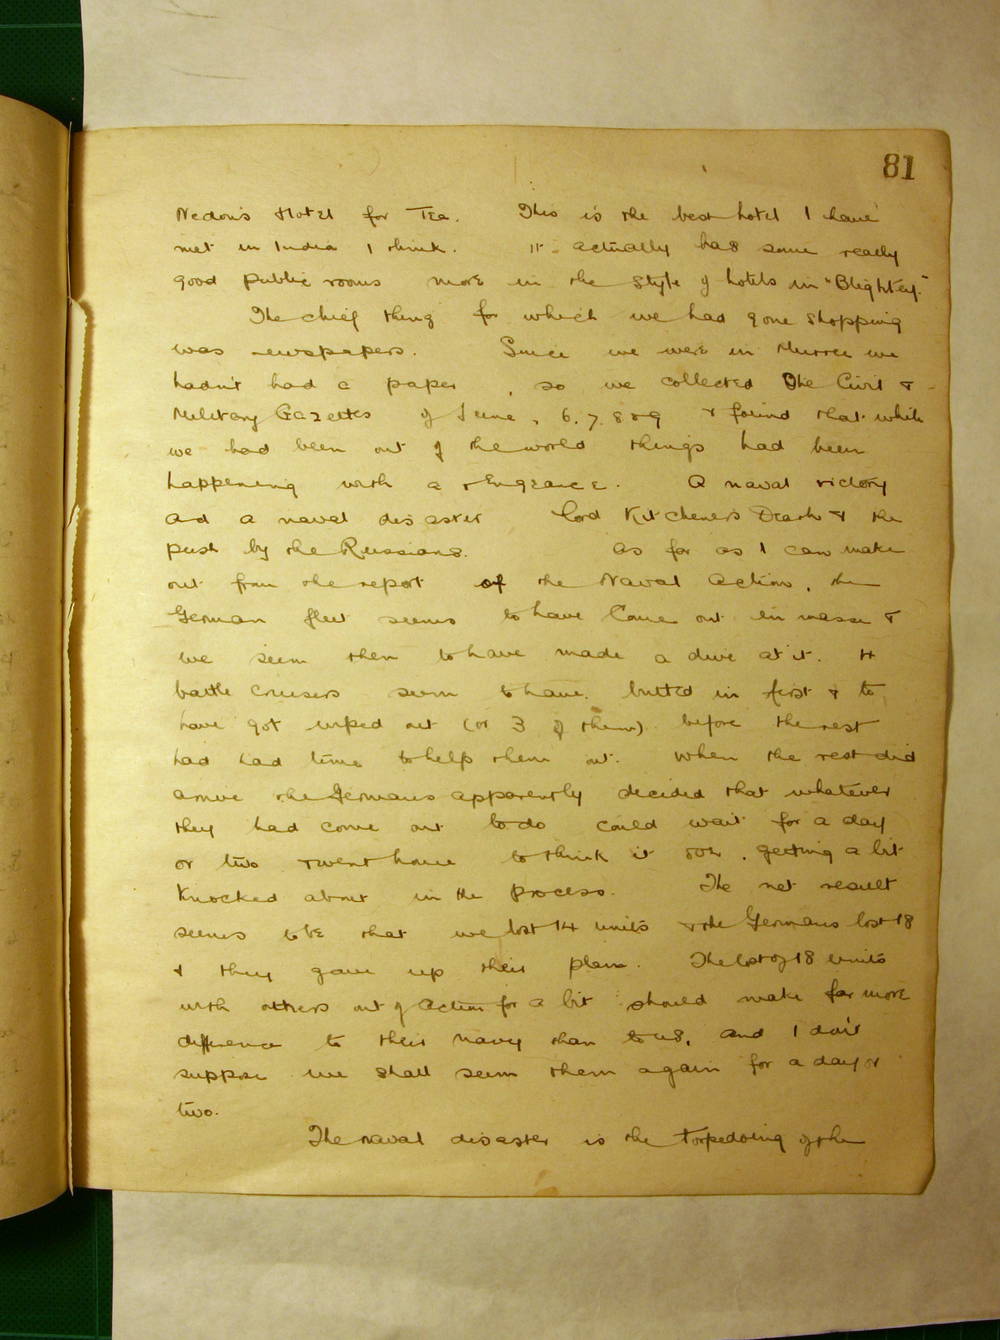 81
Nedon's Hotel for Tea. This is the best hotel I have
met in India I think. It actually has some really
good public rooms more in the style of hotels in "Blightey."
The chief thing for which we had gone shopping
was newspapers. Since we were in Murree we
hadn't had a paper, so we collected The Civil &
Military Gazettes of June, 6. 7. 8 & 9 & found that while
we had been out of the world things had been
happening with a vengeance. A naval victory
and a naval disaster Lord Kitchener's Death & the
push by the Russians. As far as I can make
out from the report of the Naval Action, the
German fleet seems to have come out en masse &
we seem then to have made a dive at it. H
battle cruisers seem to have butted in first & to
have got wiped out (or 3 of them) before the rest
had had time to help them out. When the rest did
arrive the Germans apparently decided that whatever
they had come out to do could wait for a day
or two & went home to think it over, getting a bit
knocked about in the process. The net result
seems to be that we lost 14 units & the Germans lost 18
& they gave up their plan. The lost of 18 units
with others out of action for a bit should make far more
difference to their navy than to us, and I don't
suppose we shall seem them again for a day or
two.
The naval disaster is the torpedoing of the